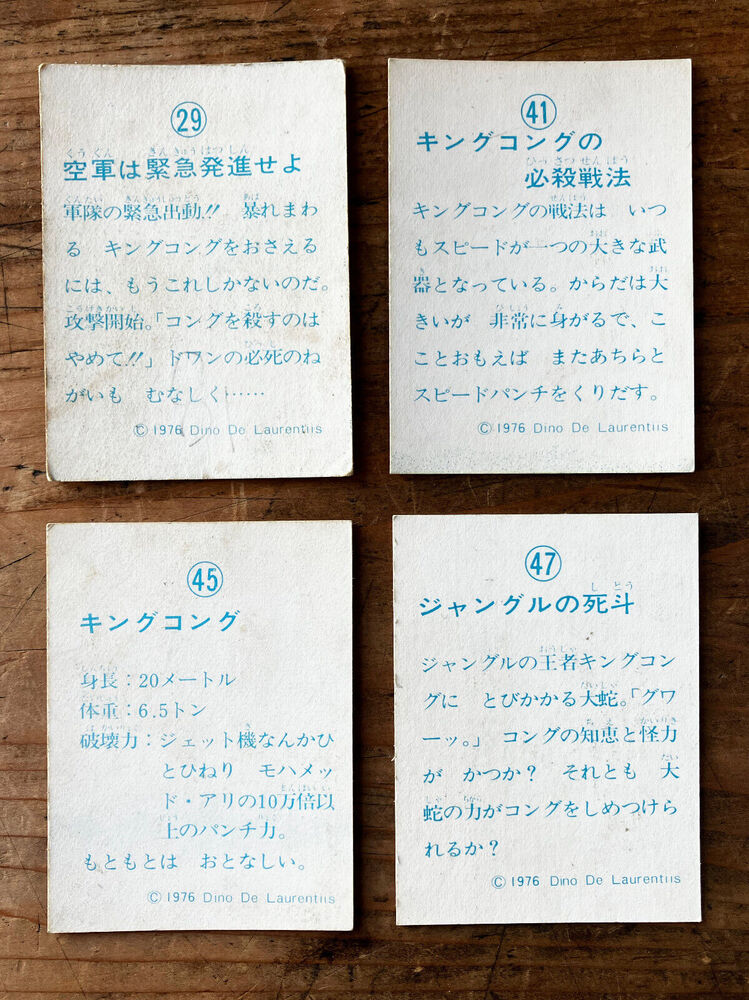 29
空軍は緊急発進せよ
軍隊の緊急出動!! 暴れまわ
る キングコングをおさえる
には、もうこれしかないのだ。
攻撃開始。「コングを殺すのは
やめて!!」ドワンの必死のね
がいも むなしく……
©1976 Dino De Laurentiis
41
キングコングの
必殺戦法
キングコングの戦法は いつ
もスピードが一つの大きな武
器となっている。からだは大
きいが 非常に身がるで、こ
ことおもえば またあちらと
スピードパンチをくりだす。
©1976 Dino De Laurentiis
45
キングコング
身長：20メートル
体重：6.5トン
破壊力：ジェット機なんかひ
とひねり モハメッ
ド・アリの10万倍以
上のパンチ力。
もともとは おとなしい。
©1976 Dino De Laurentiis
47
ジャングルの死斗
ジャングルの王者キングコン
グに とびかかる大蛇。「グワ
ーッ。」 コングの知恵と怪力
が かつか？ それとも 大
蛇の力がコングをしめつけら
れるか？
©1976 Dino De Laurentiis